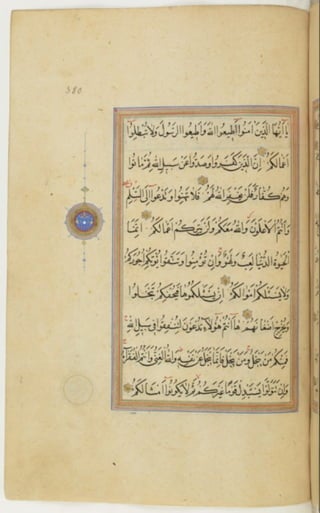 يَا أَيُّهَا الَّذِينَ آمَنُوا أَطِيعُوا اللَّهَ وَأَطِيعُوا الرَّسُولَ وَلَا تُبْطِلُوا
أَعْمَالَكُمْ إِنَّ الَّذِينَ كَفَرُوا وَصَدُّوا عَنْ سَبِيلِ اللَّهِ ثُمَّ مَاتُوا
وَهُمْ كُفَّارٌ فَلَنْ يَغْفِرَ اللَّهُ لَهُمْ فَلَا تَهِنُوا وَتَدْعُوا إِلَى السَّلْمِ
وَأَنْتُمُ الْأَعْلَوْنَ وَاللَّهُ مَعَكُمْ وَلَنْ يَتِرَكُمْ أَعْمَالَكُمْ إِنَّمَا
الْحَيٰوةُ الدُّنْيَا لَعِبٌ وَلَهْوٌ وَإِنْ تُؤْمِنُوا وَتَتَّقُوا يُؤْتِكُمْ أُجُورَكُمْ
وَلَا يَسْئَلْكُمْ أَمْوَالَكُمْ إِنْ يَسْئَلْكُمُوهَا فَيُحْفِكُمْ تَبْخَلُوا
وَيُخْرِجْ أَضْغَانَكُمْ هَا أَنْتُمْ هٰؤُلَاءِ تُدْعَوْنَ لِتُنْفِقُوا فِي سَبِيلِ اللَّهِ
فَمِنْكُمْ مَنْ يَبْخَلُ وَمَنْ يَبْخَلْ فَإِنَّمَا يَبْخَلُ عَنْ نَفْسِهِ وَاللَّهُ الْغَنِيُّ وَأَنْتُمُ الْفُقَرَاءُ
وَإِنْ تَتَوَلَّوْا يَسْتَبْدِلْ قَوْمًا غَيْرَكُمْ ثُمَّ لَا يَكُونُوا أَمْثَالَكُمْ